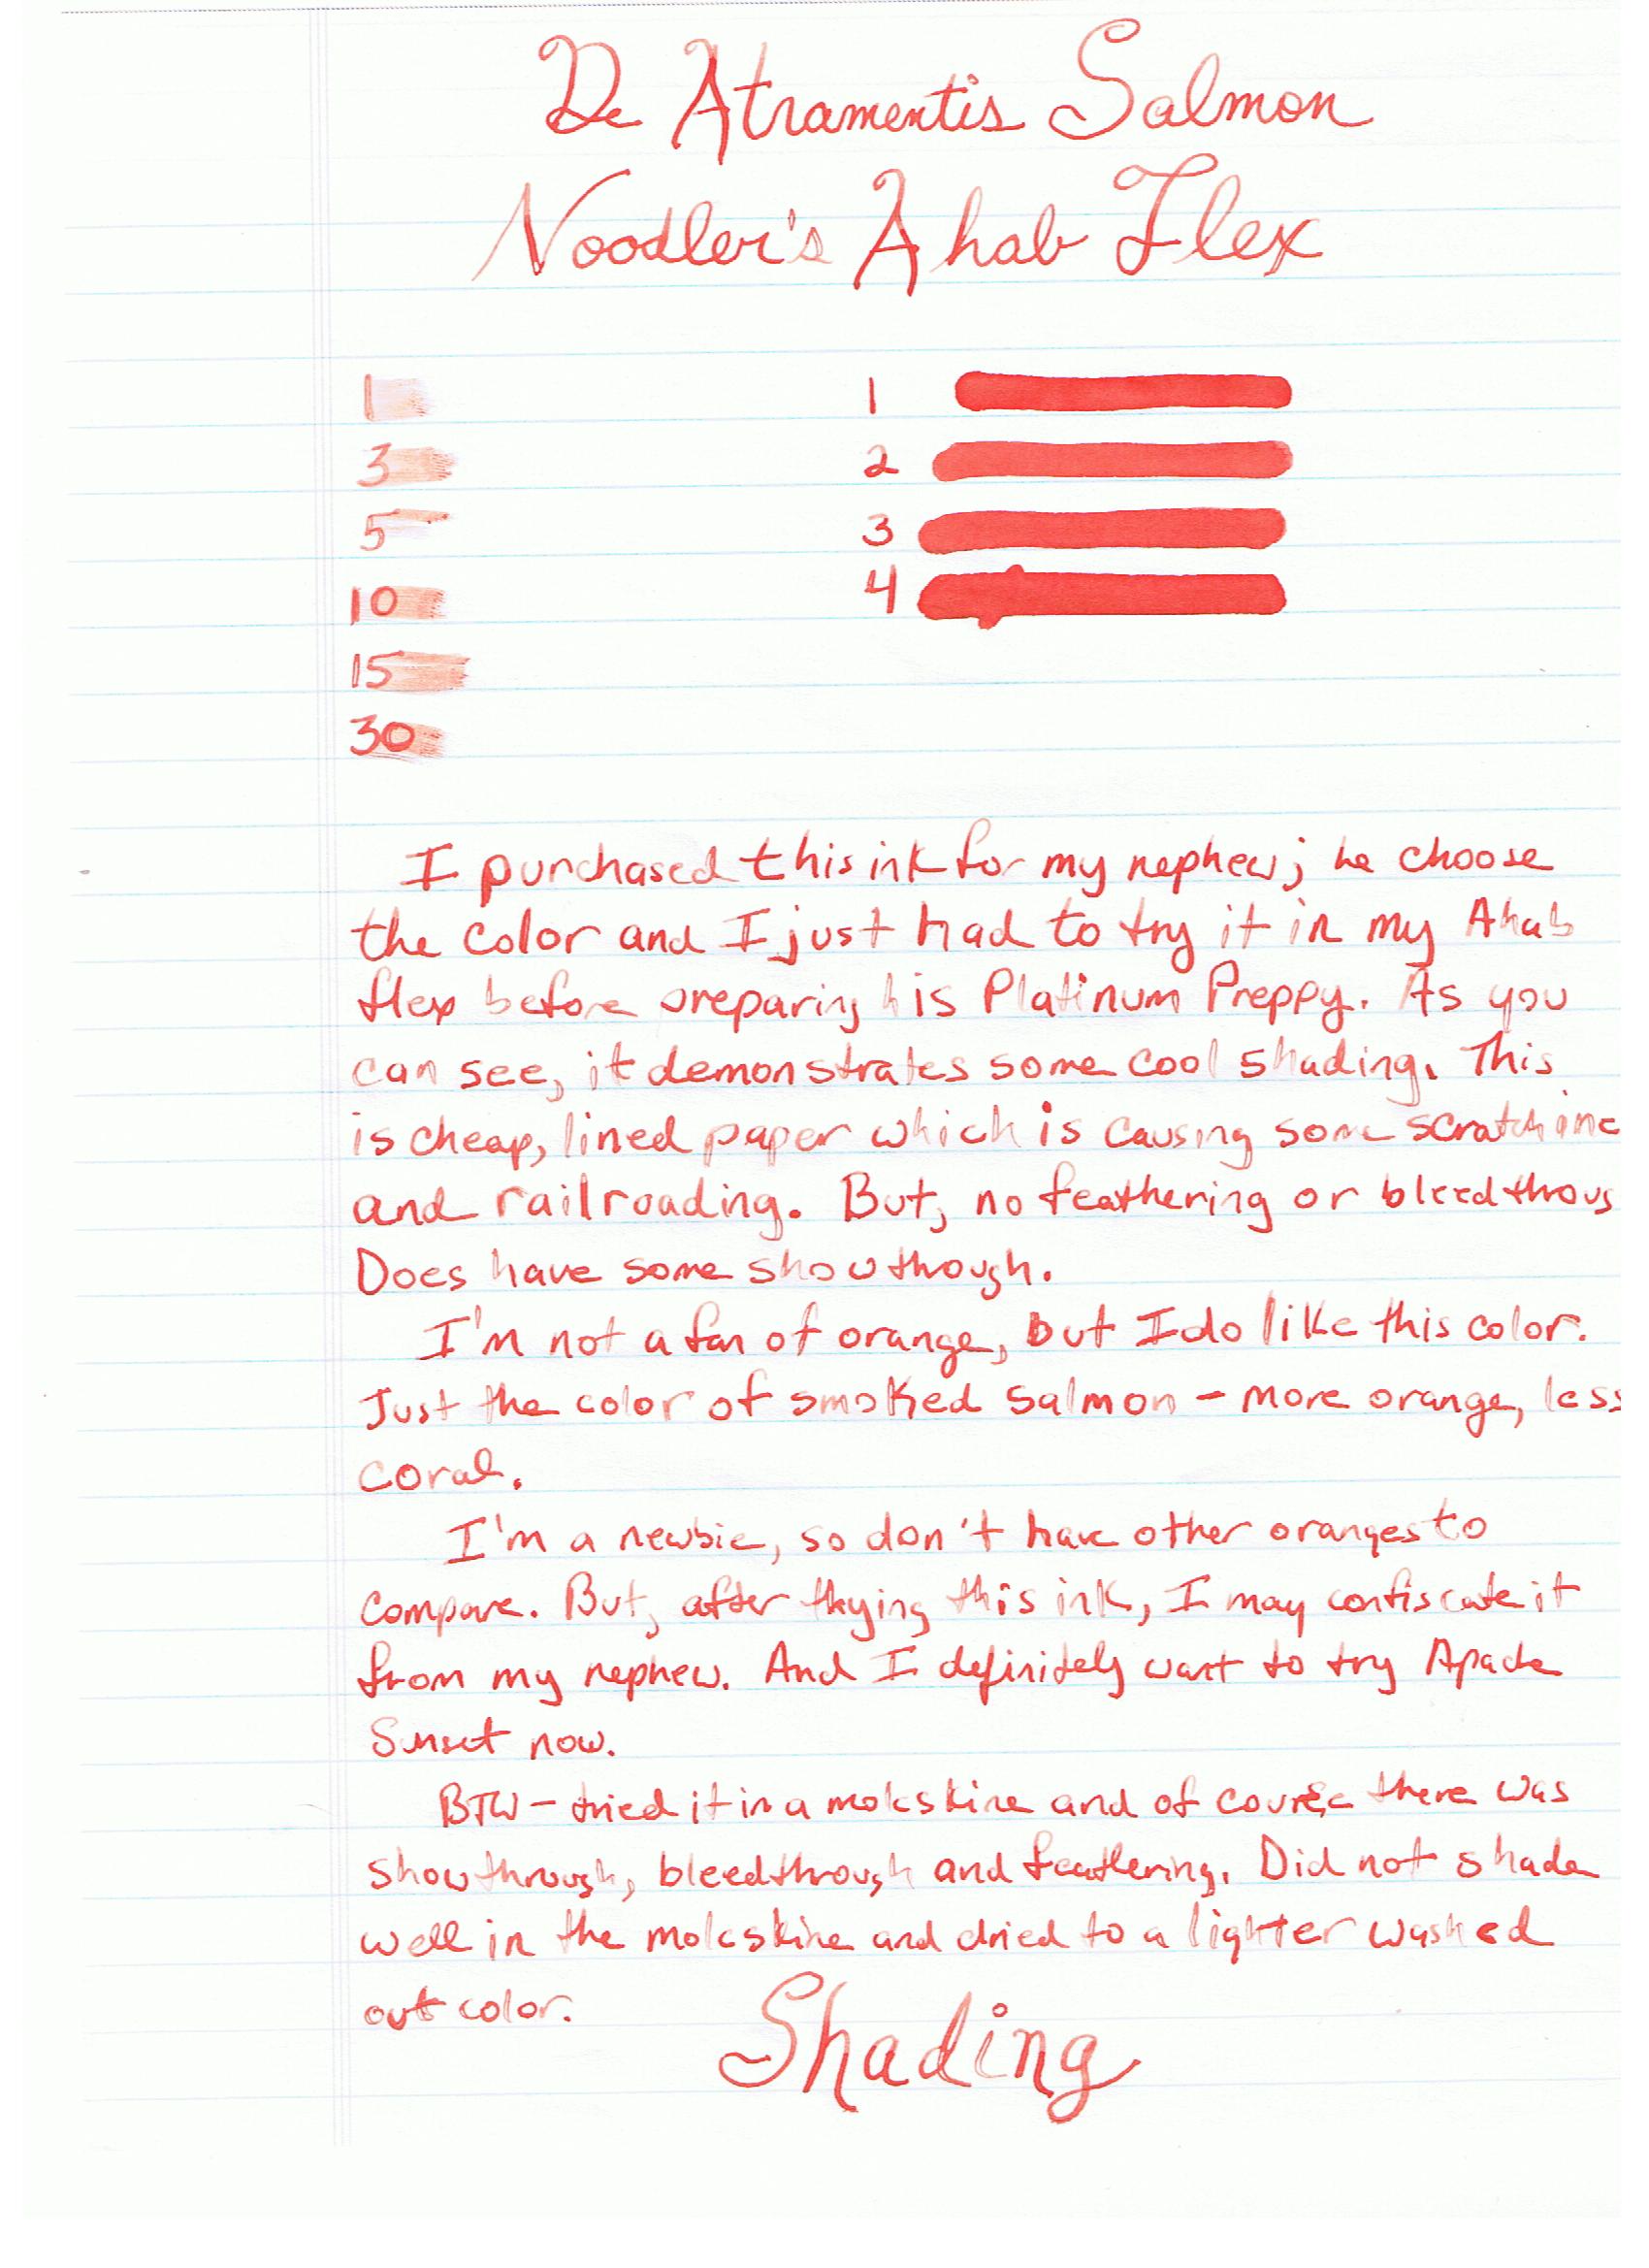 De Atramentis Salmon
Noodler's Ahab Flex
1 1
3 2
5 3
10 4
15
30
I purchased this ink for my nephew; he choose
the color and I just had to try it in my Ahab
flex before preparing his Platinum Preppy. As you
can see, it demonstrates some cool shading. This
is cheap, lined paper which is causing some scratchine
and railroading. But, no feathering or bleedthroug
Does have some showthough.
I'm not a fan of orange, but I do like this color.
Just the color of smoked salmon - more orange, less
coral.
I'm a newbie, so don't have other oranges to
compare. But, after trying this ink, I may confiscate it
from my nephew. And I definitely want to try Apache
Sunset now.
BTW - tried it in a moleskine and of course there was
showthrough, bleedthrough and feathering. Did not shade
well in the moleskine and dried to a lighter washed
out color.
Shading